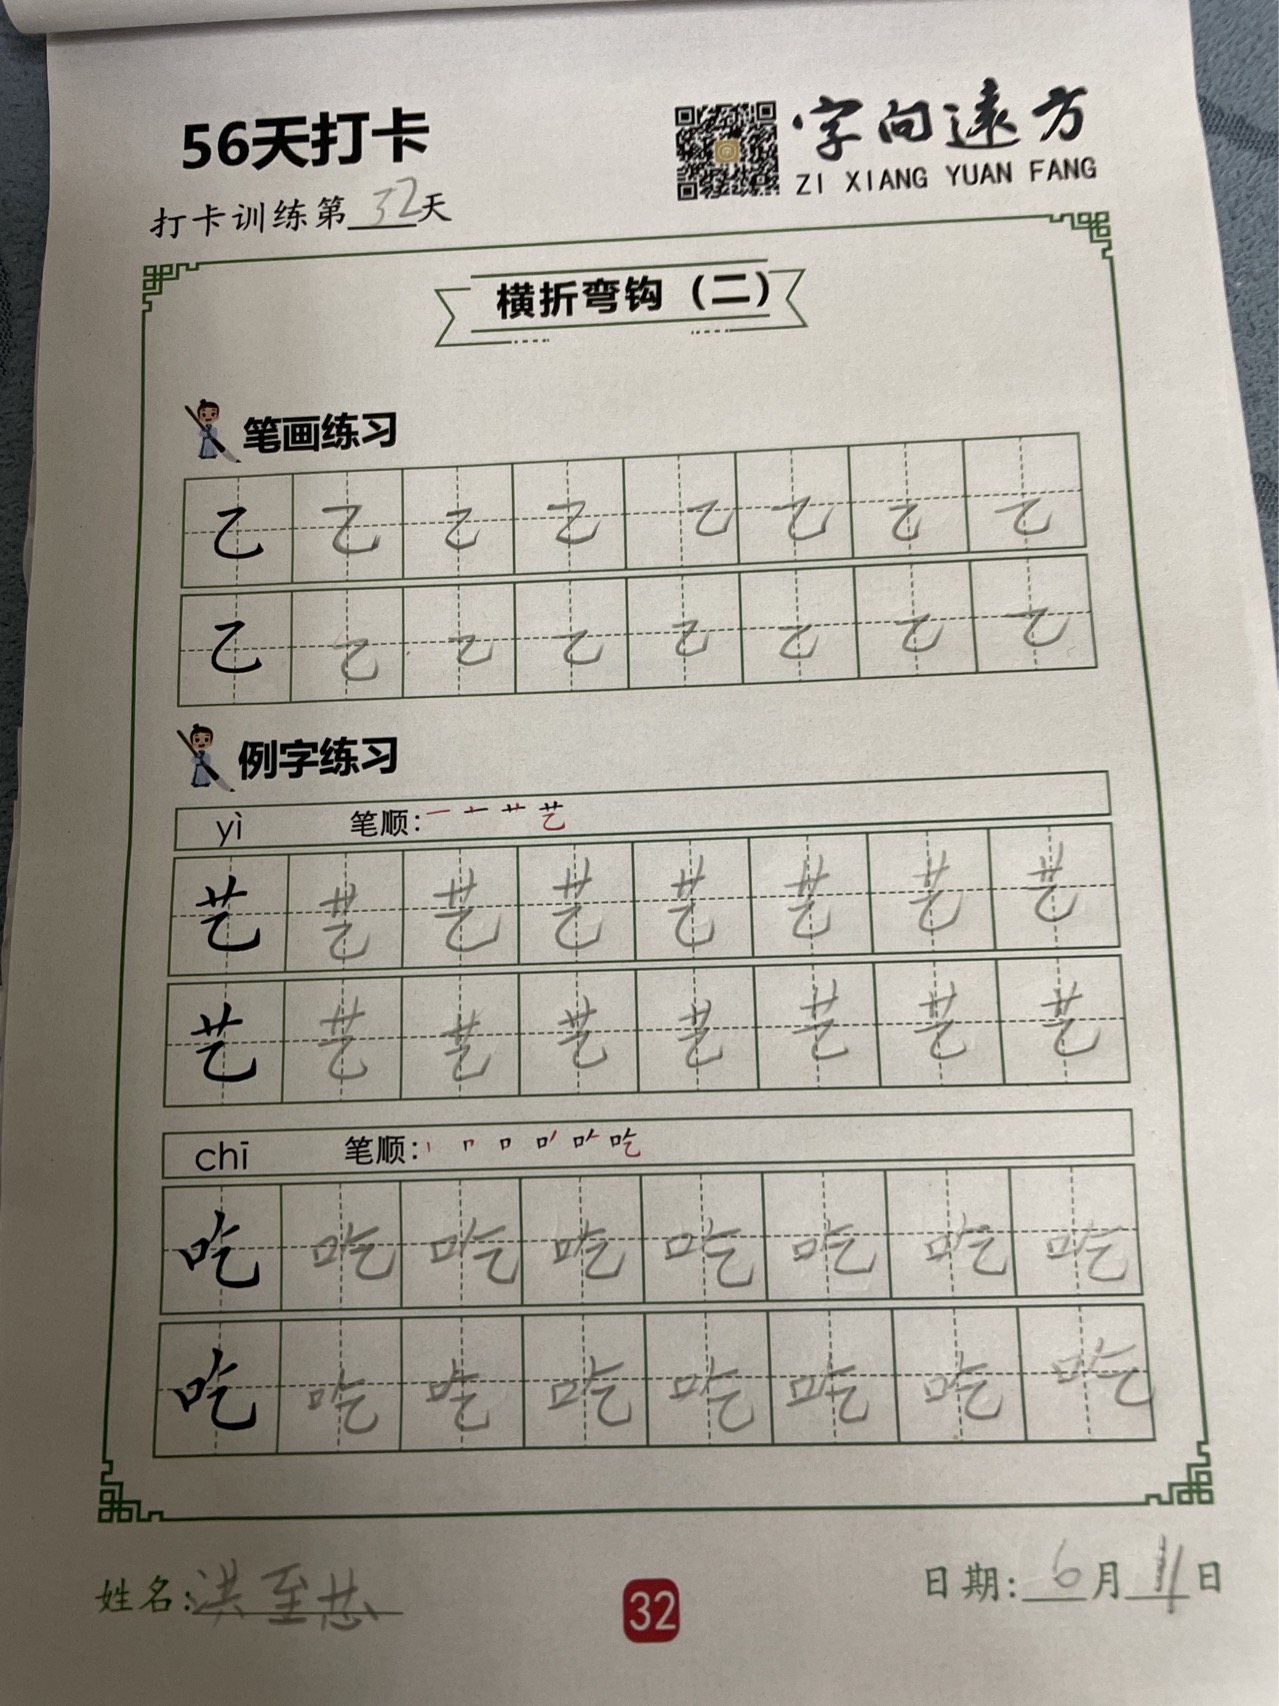 56天打卡
字向遠方
ZI XIANG YUAN FANG
打卡训练第32天
横折弯钩（二）
笔画练习
乙 乙 乙 乙 乙 乙 乙 乙
乙 乙 乙 乙 乙 乙 乙 乙
例字练习
yì 笔顺: 一 艹 艺
艺 艺 艺 艺 艺 艺 艺 艺
艺 艺 艺 艺 艺 艺 艺 艺
chī 笔顺: 丨 口 吃
吃 吃 吃 吃 吃 吃 吃 吃
吃 吃 吃 吃 吃 吃 吃 吃
姓名: 洪至
日期: 6月11日
32